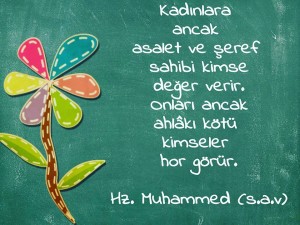 Kadınlara
ancak
asalet ve şeref
sahibi kimse
değer verir.
onları ancak
ahlâkı kötü
kimseler
hor görür.
Hz. Muhammed (s.a.v)